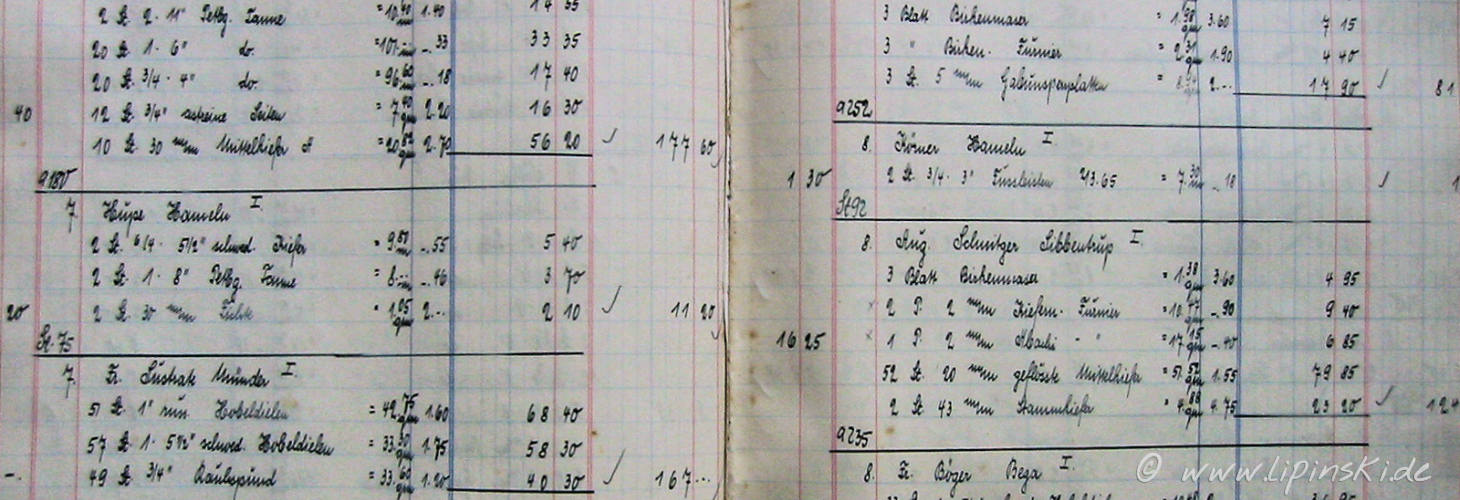 2 St. 2 · 11" Petbg. Tanne = 10.40 m 1.40 14 55
20 St. 1 · 6" do. = 101.- m -.33 33 35
20 St. 3/4 · 4" do. = 96.60 m -.18 17 40
40 12 St. 3/4" astreine Seiten = 7.40 qm 2.20 16 30
10 St. 30 m/m Mittelkiefer = 20.82 qm 2.70 56 20 177 60
9180
7. Hupe Hameln I.
2 St. 6/4 · 5 1/2" schwed. Kiefer = 9.80 m -.55 5 40
2 St. 1 · 8" Petbg. Tanne = 8.- m -.46 3 70
20 2 St. 30 m/m Fichte = 1.05 qm 2.-- 2 10 11 20
St. 75
7. Fr. Münder I.
51 St. 1" Hobeldielen = 42.75 qm 1.60 68 40
57 St. 1 · 5 1/2" schwed. Hobeldielen = 33.30 qm 1.75 58 30
-. 49 St. 3/4" Rauhspund = 33.60 qm 1.20 40 30 167 --
3 Blatt Birkenmaser = 1.98 qm 3.60 7 15
3 " Birken-Furnier = 2.31 qm 1.90 4 40
3 St. 5 m/m Gabunsperrplatten 2.-- 17 90 81
9252
8. Körner Hameln I.
1 30 2 St. 3/4 · 3" Fussleisten 213.65 = 7.30 m -.18 1
St 92
8. Aug. Schnitger Sibbentrup I.
3 Blatt Birkenmaser = 1.38 qm 3.60 4 95
x 2 P. 2 m/m Kiefern-Furnier = 10.47 qm -.90 9 40
16 25 x 1 P. 2 m/m Abachi - " = 17.15 qm -.40 6 85
52 St. 20 m/m geflösste Mittelkiefer = 51.52 qm 1.55 79 85
2 St. 43 m/m Stammkiefer = 4.88 qm 4.75 23 20 124
9235
8. Fr. Böger Bega I.
© www.lipinski.de